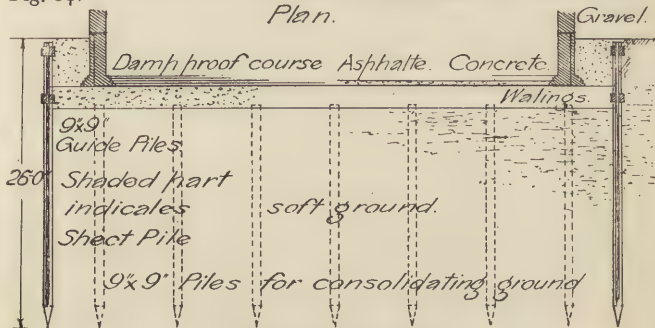 Plan.
Gravel.
Damp proof course Asphalte. Concrete
Walings.
9"x9"
Guide Piles
26'0"
Shaded part
indicates soft ground.
Sheet Pile
9"x9" Piles for consolidating ground